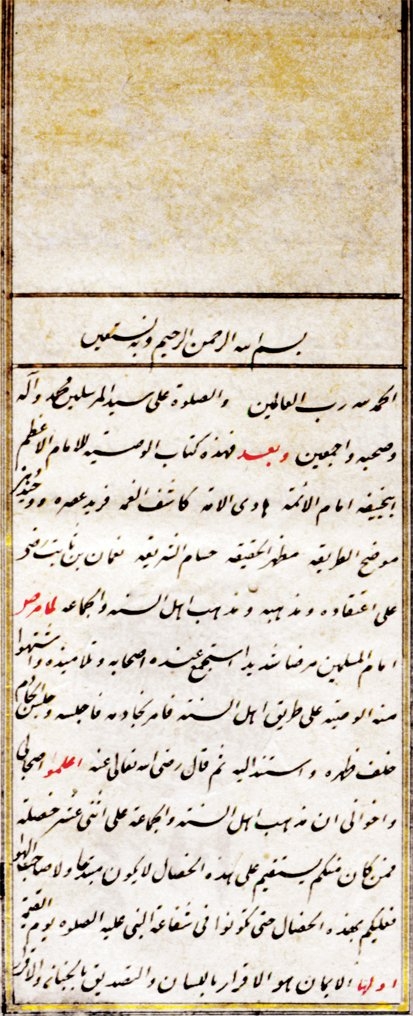 بسم الله الرحمن الرحيم وبه نستعين
الحمد لله رب العالمين والصلوة على سيد المرسلين محمد وآله
وصحبه اجمعين وبعد فهذه كتاب الوصية للامام الاعظم
ابيحنيفه امام الائمة هادى الامة كاشف الغمه فريد عصره ووحيد
موضح الطريقه مظهر الحقيقه حسام الشريعه نعمان بن ثابت
على اعتقاده ومذهبه ومذهب اهل السنه والجماعه لما مرض
امام المسلمين مرضا شديدا استجمع عنده اصحابه وتلاميذه واشتهوا
منه الوصية على طريق اهل السنة فامر بخادمه فاجلسه وجلس الخادم
خلف ظهره واستند اليه ثم قال رضى الله تعالى عنه اعلموا اصحابى
واخوانى ان مذهب اهل السنة والجماعة على اثنى عشر خصلة
فمن كان منكم يستقيم على هذه الخصال لا يكون مبتدعا ولا صاحب الهوا
فعليكم بهذه الخصال حتى تكونوا فى شفاعة النبى عليه الصلوه يوم القيمة
اولها الايمان هو الاقرار باللسان والتصديق بالجنان والاقرار